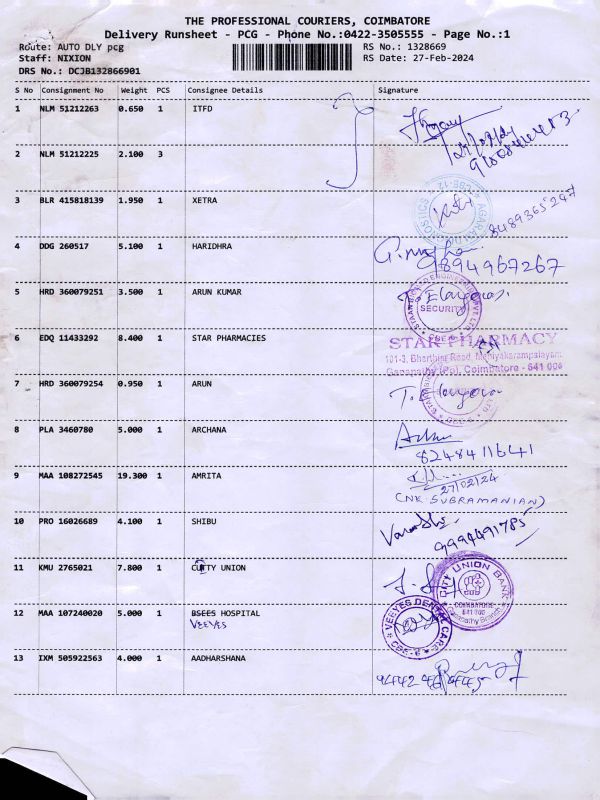 THE PROFESSIONAL COURIERS, COIMBATORE
Delivery Runsheet - PCG - Phone No.:0422-3505555 - Page No.:1
Route: AUTO DLY pcg
RS No.: 1328669
Staff: NIXION
RS Date: 27-Feb-2024
DRS No.: DCJB132866901
S No Consignment No Weight PCS Consignee Details Signature
1 NLM 51212263 0.650 1 ITFD
2 NLM 51212225 2.100 3
3 BLR 415818139 1.950 1 XETRA
8489365247
4 DDG 260517 5.100 1 HARIDHRA
894967267
5 HRD 360079251 3.500 1 ARUN KUMAR
SECURITY
6 EDQ 11433292 8.400 1 STAR PHARMACIES
STAR PHARMACY
101-3, Bharathiar Road, Maniyakarampalayam
Ganapathy (Po), Coimbatore - 641 006
7 HRD 360079254 0.950 1 ARUN
8 PLA 3460780 5.000 1 ARCHANA
8248411641
9 MAA 108272545 19.300 1 AMRITA
27/02/24
(NK SUBRAMANIAN)
10 PRO 16026689 4.100 1 SHIBU
9994491785
11 KMU 2765021 7.800 1 CITY UNION
CITY UNION BANK
CUB
COIMBATORE
Ganapathy Branch
12 MAA 107240020 5.000 1 BSEES HOSPITAL
VEEYES
VEEYES DENTAL CARE
CBE-6
13 IXM 505922563 4.000 1 AADHARSHANA